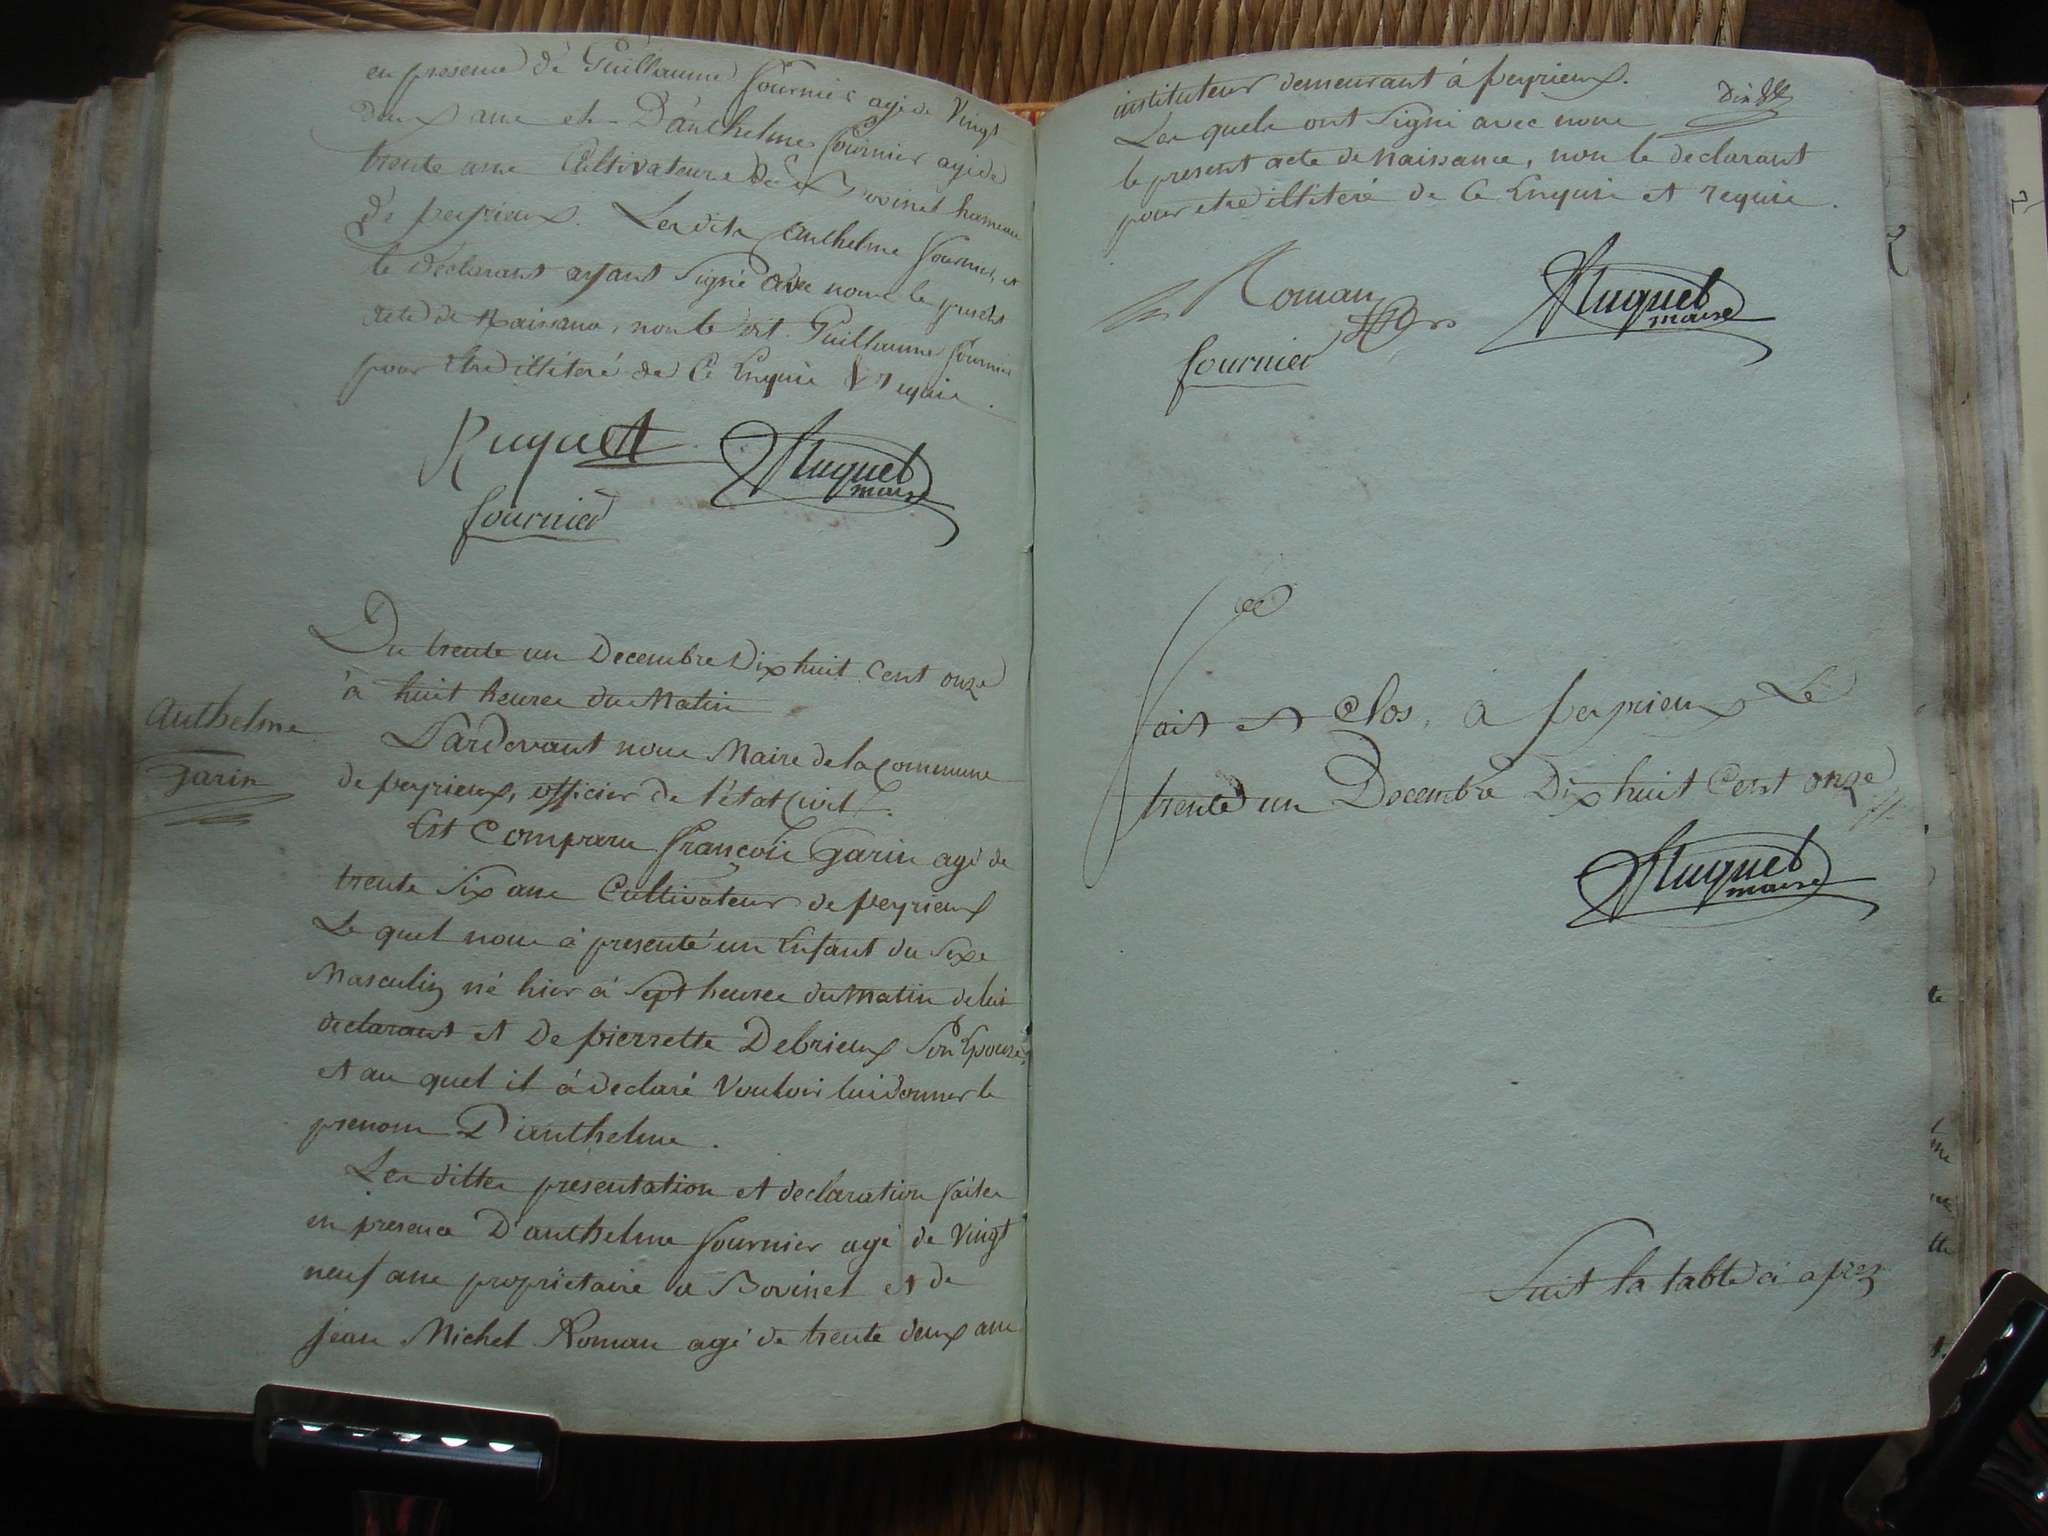 en presence de Guillaume fournier agé de Vingt
deux ans et Danthelme fournier agé de
trente ans Cultivateurs de Bovinel hameau
de peyrieux. Les dits Anthelme fournier et
le déclarant ayant Signé avec nous le present
acte de Naissance, non le dit Guillaume fournier
pour etre illiteré de Ce Enquis & requis.
Ruquet Huguet
maire
fournier
Du trente un Decembre Dix huit Cent onze
à huit heures du Matin
Anthelme
Garin
Pardevant nous Maire de la Commune
de peyrieux, officier de l'état Civil.
Est Comparu françois Garin agé de
trente Six ans Cultivateur de peyrieux
Le quel nous à presenté un Enfant du Sexe
Masculin né hier à Sept heures du Matin de lui
declarant et De pierrette Debrieux Son Epouse,
et au quel il à declaré Vouloir lui donner le
prenom D'anthelme.
Les dittes presentation et declaration faites
en presence D'anthelme fournier agé de Vingt
neuf ans proprietaire a Bovinel et de
jean Michel Roman agé de trente deux ans
instituteur demeurant à peyrieux.
Les quels ont Signé avec nous
le present acte de Naissance, non le declarant
pour etre illiteré de Ce Enquis et requis.
Roman Huguet
maire
fournier
fait et Clos, à peyrieux Le
trente un Decembre Dix huit Cent onze
Huguet
maire
Suit la table ci aprez